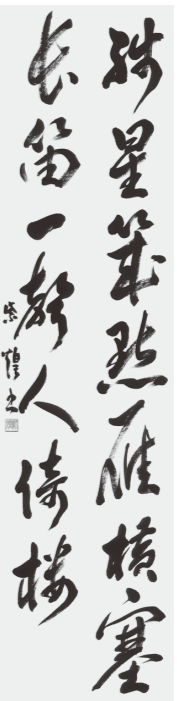 殘星幾點雁橫塞
長笛一聲人倚樓